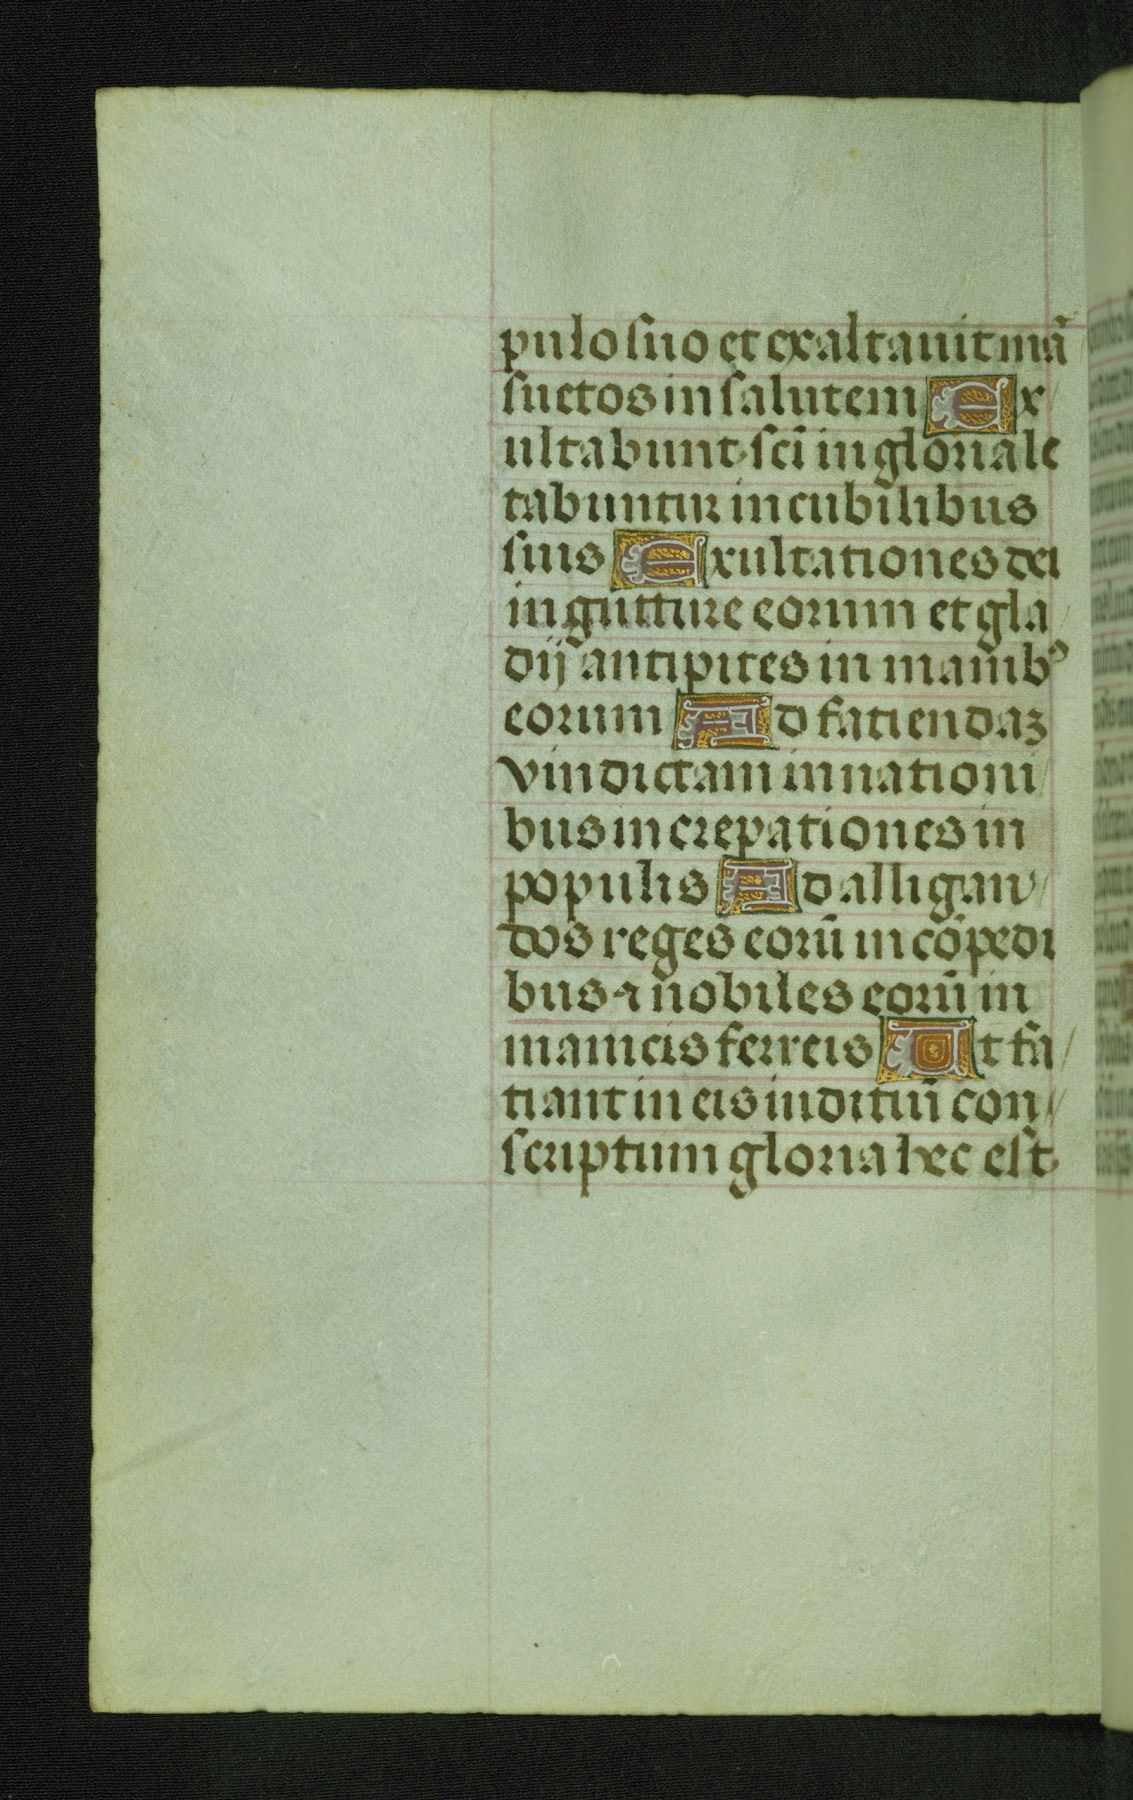 pulo suo et exaltauit mã
suetos in salutem Ex
ultabunt sc̃i in gloria le
tabuntur in cubilibus
suis Exultationes dei
in gutture eorum et gla
dij antipites in manib⁹
eorum Ad fatiendaʒ
vindictam in nationi
bus increpationes in
populis Ad alligan
dos reges eorũ in cõpedi
bus ⁊ nobiles eorũ in
manicis ferreis Ut fa
tiant in eis iuditiũ con
scriptum gloria hec est